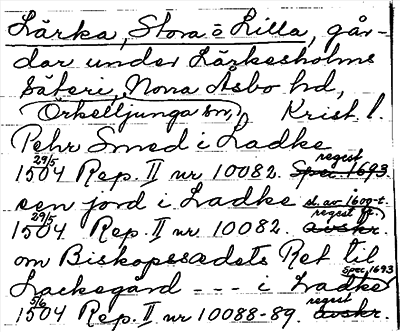 Lärka, Stora o Lilla, går-
dar under Lärkesholms
säteri, Norra Åsbo hd,
(Örkelljunga sn,) Krist. l.
Pehr Smed i Ladke
29/5 1504 Rep. II nr 10082. Spec 1693 regist
een jord i Ladke sl. av 1600-t.
29/5 1504 Rep. II nr 10082. avskr. regist
om Biskopssædets Ret til
Lackegård --- i Ladke spec 1693
5/6 1504 Rep. II nr 10088-89. avskr. regist